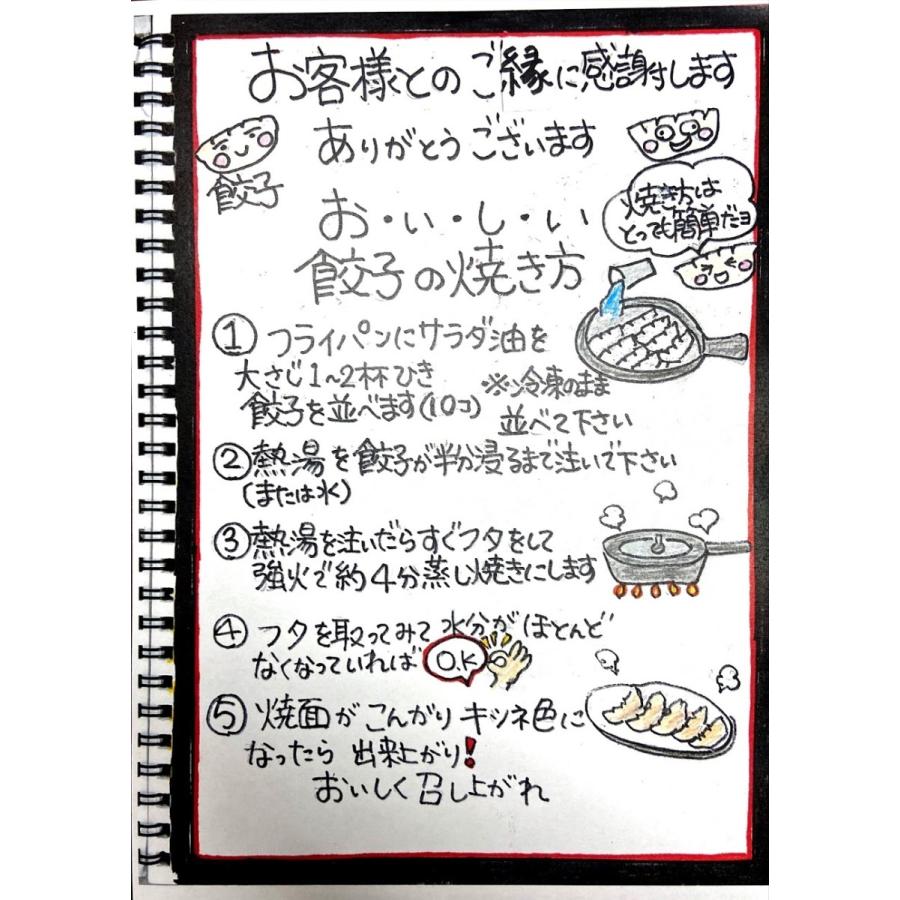 お客様とのご縁に感謝します
ありがとうございます
餃子
焼き方は
とっても簡単だヨ
お・い・し・い
餃子の焼き方
① フライパンにサラダ油を
大さじ1~2杯ひき
餃子を並べます(10コ)
※冷凍のまま
並べて下さい
② 熱湯を餃子が半分浸るまで注いで下さい
(または水)
③ 熱湯を注いだらすぐフタをして
強火で約4分蒸し焼きにします
④ フタを取ってみて水分がほとんど
なくなっていればO.K
⑤ 焼面がこんがりキツネ色に
なったら出来上がり!
おいしく召し上がれ